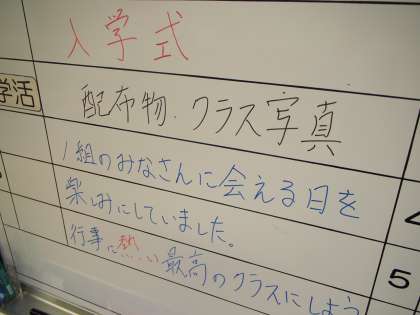 入学式
学活
配布物、クラス写真
1組のみなさんに会える日を
楽しみにしていました。
行事に熱い最高のクラスにしよう
5